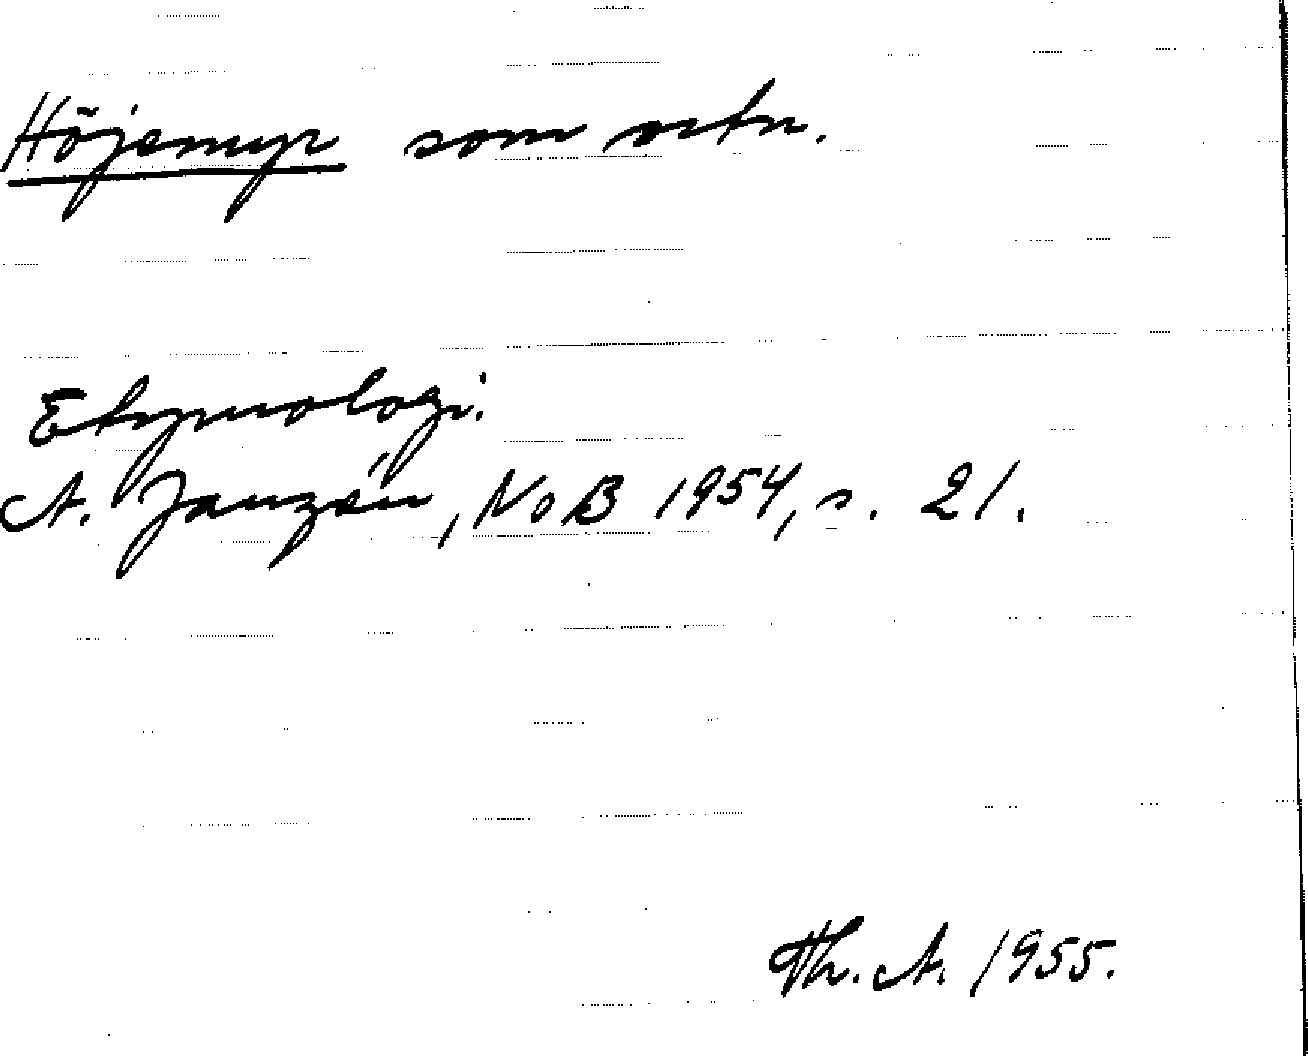 Höjemyr som ortn.
Etymologi.
A. Janzén, NoB 1954, s. 21.
Th. A. 1955.